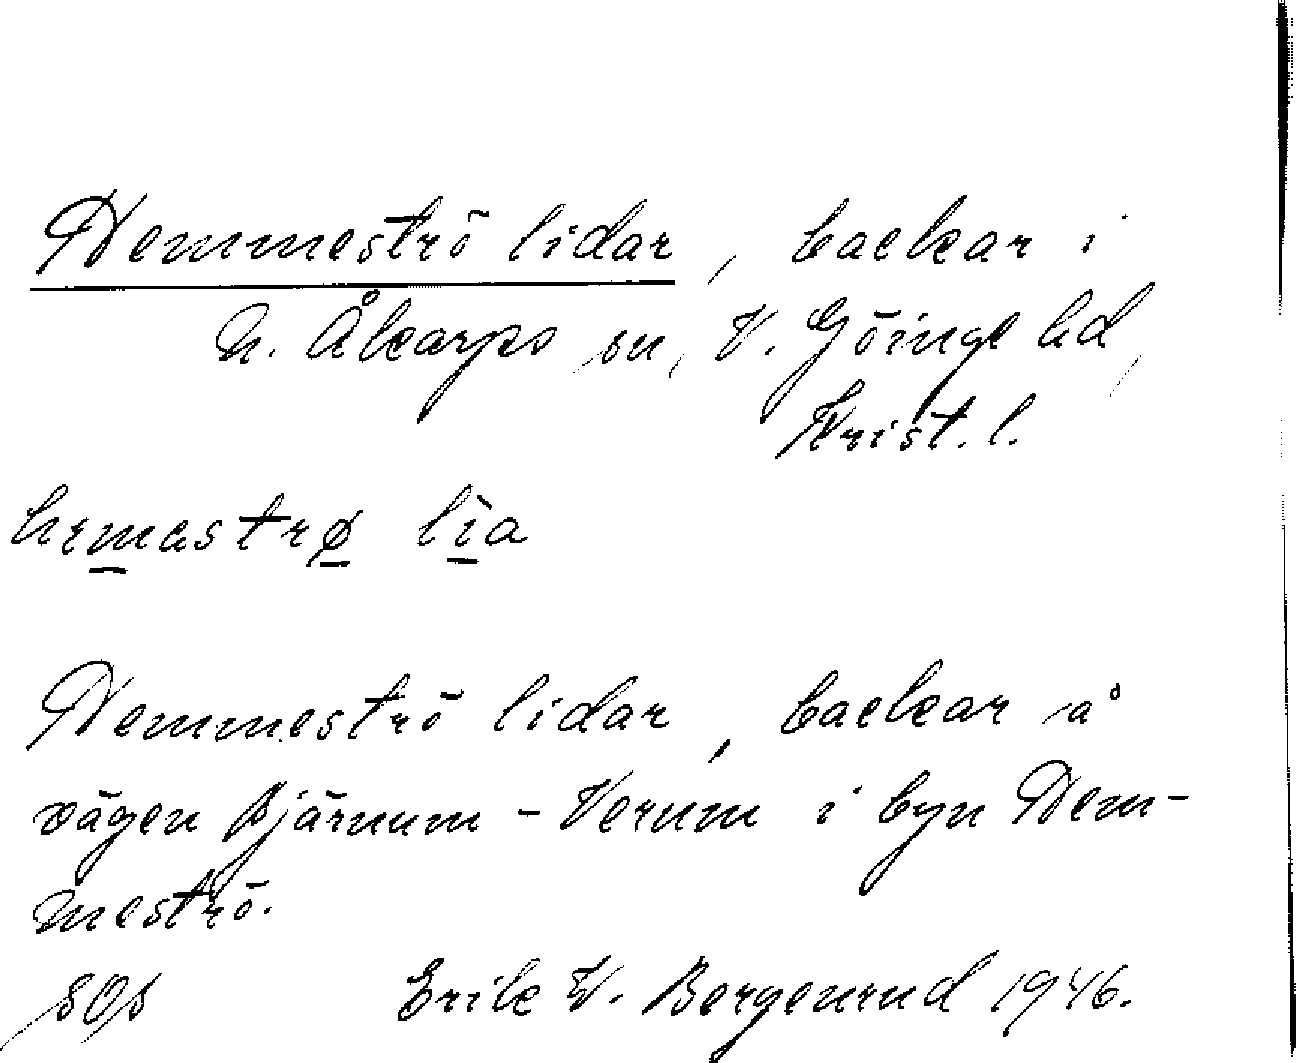 Hemmeströ lidar, backar i
N. Åkarps sn, V. Göinge hd,
Krist. l.
hɛməstrø lìa
Hemmeströ lidar, backar å
vägen Bjärnum - Verum i byn Hem-
meströ.
Erik W. Bergenrud 1946.